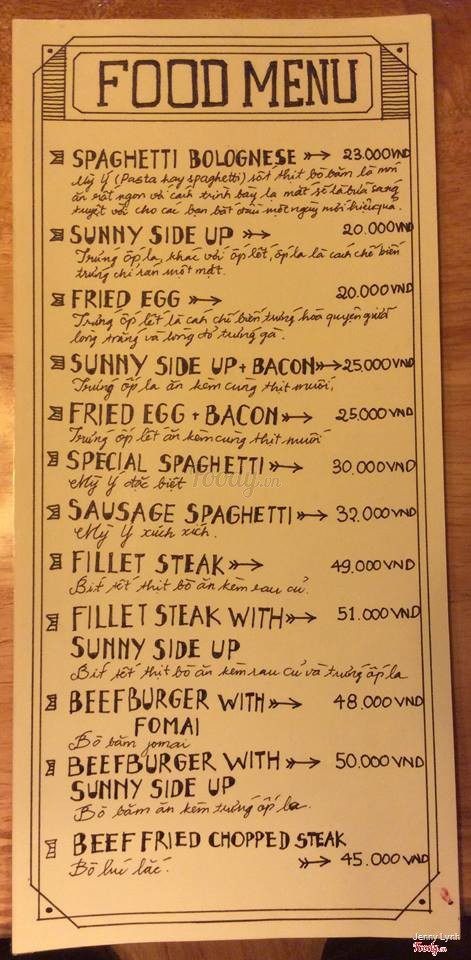 FOOD MENU
SPAGHETTI BOLOGNESE 23.000VND
Mỳ Ý (Pasta hay spaghetti) sốt thịt bò bằm là món
ăn rất ngon và cách trình bày lạ mắt sẽ là bữa sáng
tuyệt vời cho các bạn bắt đầu một ngày mới hiệu quả.
SUNNY SIDE UP 20.000VND
Trứng ốp la, khác với ốp lết, ốp la là cách chế biến
trứng chỉ rán một mặt.
FRIED EGG 20.000VND
Trứng ốp lết là cách chế biến trứng hòa quyện giữa
lòng trắng và lòng đỏ trứng gà.
SUNNY SIDE UP + BACON 25,000VND
Trứng ốp la ăn kèm cùng thịt muối,
FRIED EGG + BACON 25,000VND
Trứng ốp lết ăn kèm cùng thịt muối
SPECIAL SPAGHETTI 30.000VND
Mỳ Ý đặc biệt
foody.vn
SAUSAGE SPAGHETTI 32.000VND
Mỳ Ý xúch xích.
FILLET STEAK 49.000VND
Bít tết thịt bò ăn kèm rau củ.
FILLET STEAK WITH 51.000VND
SUNNY SIDE UP
Bít tết thịt bò ăn kèm rau củ và trứng ốp la
BEEFBURGER WITH 48.000VND
FOMAI
Bò bằm fomai
BEEFBURGER WITH 50.000VND
SUNNY SIDE UP
Bò bằm ăn kèm trứng ốp la.
BEEF FRIED CHOPPED STEAK
45.000VND
Bò lúc lắc.
Jenny Lynh
Foody.vn